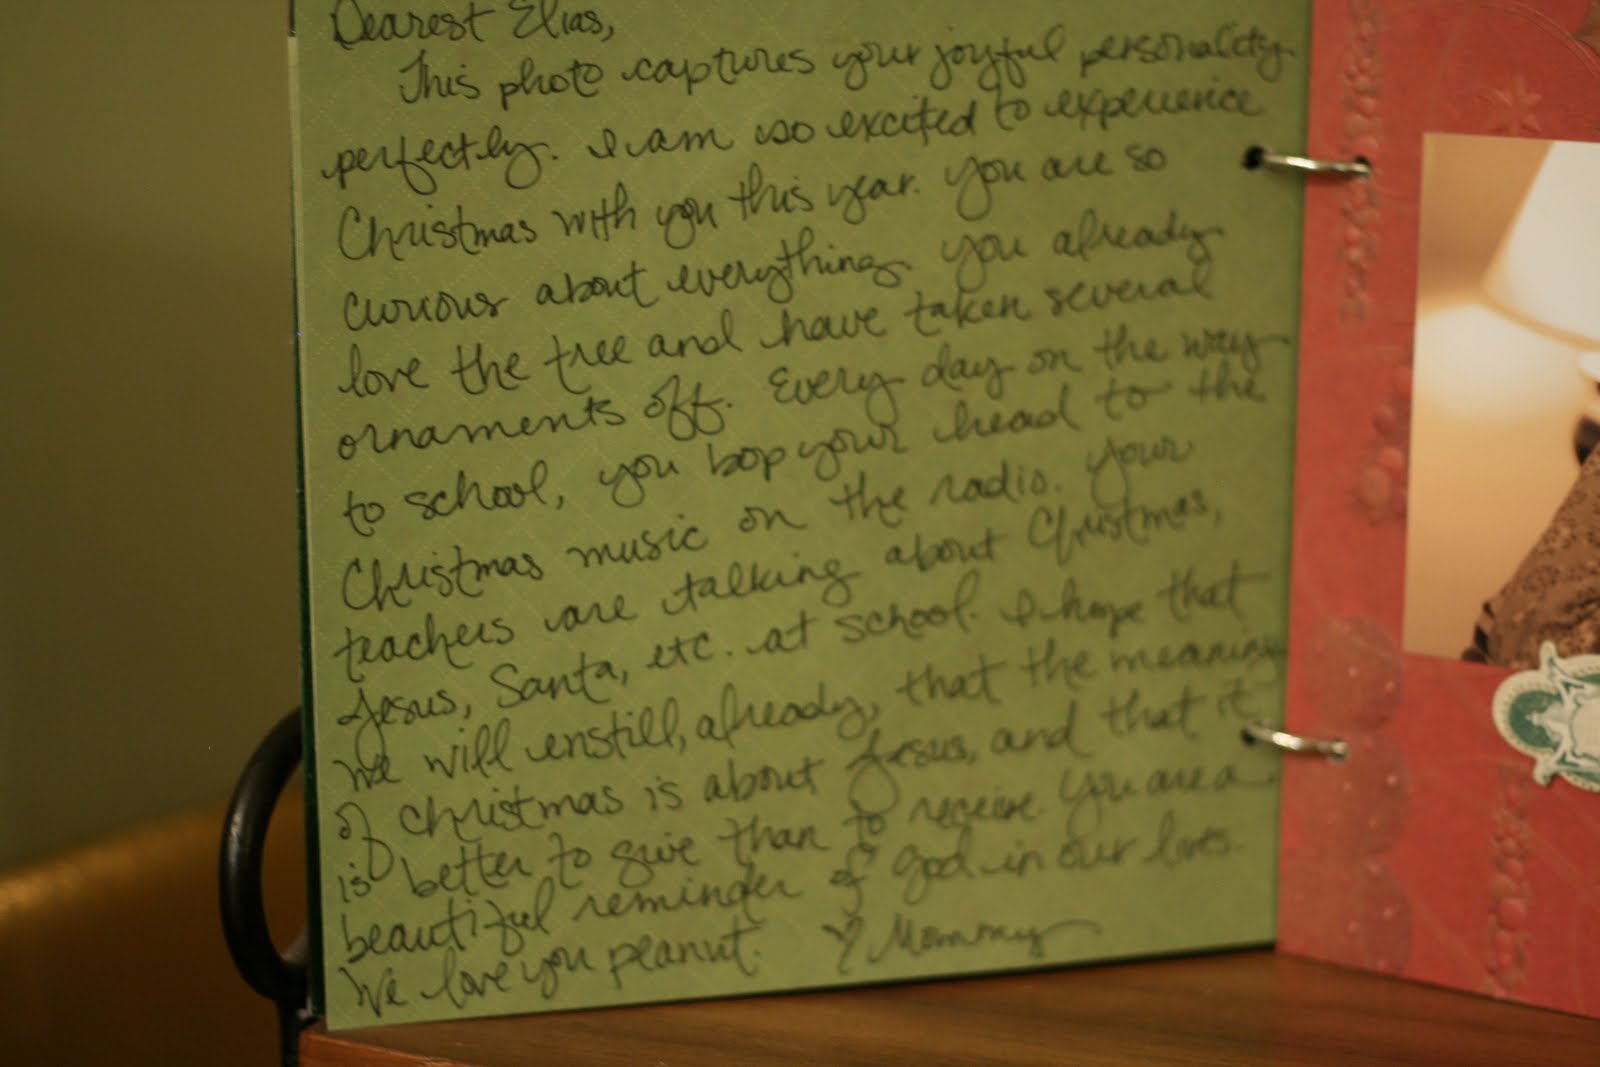 Dearest Elias,
This photo captures your joyful personality
perfectly. I am so excited to experience
Christmas with you this year. You are so
curious about everything. You already
love the tree and have taken several
ornaments off. Every day on the way
to school, you bop your head to the
Christmas music on the radio. Your
teachers are talking about Christmas,
Jesus, Santa, etc. at school. I hope that
we will enstill, already, that the meaning
of Christmas is about Jesus, and that it
is better to give than to receive. You are a
beautiful reminder of God in our lives.
We love you peanut. ♡ Mommy